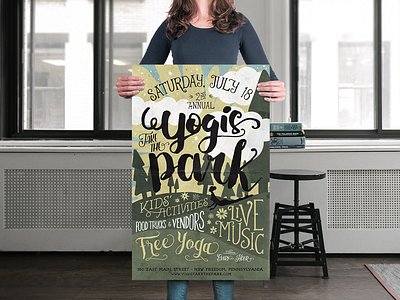 SATURDAY, JULY 18
2nd
ANNUAL
Yogis
TAKE THE
park
KIDS'
ACTIVITIES
LIVE
MUSIC
FOOD TRUCKS & VENDORS
Free Yoga
EVERY HOUR
EAST MAIN STREET - NEW FREEDOM, PENNSYLVANIA